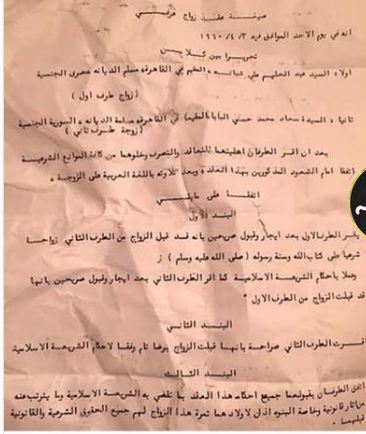 صيغة عقد زواج عرفي
انه في يوم الاحد الموافق فيه ١٩٦٠/٤/٣
تحريرا بين كلا من
اولا السيد عبد الحليم علي شبانه المقيم في القاهرة مسلم الديانه مصرى الجنسية
(زواج طرف اول)
ثانيا السيدة سعاد محمد حسني البابا المقيمة في القاهرة مسلمة الديانه السورية الجنسية
(زوجة طرف ثاني)
بعد ان اقر الطرفان اهليتهما للتعاقد والتصرف وخلوهما من كافة الموانع الشرعية
اتفقا امام الشهود المذكورين بهذا العقد وبعد تلاوته باللغة العربية على الزوجية
اتفقا على مايلي
البند الاول
يقر الطرف الاول بعد ايجاب وقبول صريحين بانه قد قبل الزواج من الطرف الثاني زواجا
شرعيا على كتاب الله وسنة رسوله (صلى الله عليه وسلم)
وعملا باحكام الشريعة الاسلامية كما اقر الطرف الثاني بعد ايجاب وقبول صريحين بانها
قد قبلت الزواج من الطرف الاول
البند الثاني
اقرت الطرف الثاني صراحة بانها قبلت الزواج برضا تام وفقا لاحكام الشريعة الاسلامية
البند الثالث
اتفق الطرفان بقبولهما جميع احكام هذا العقد بما تقضي به الشريعة الاسلامية وما يترتب عنه
من اثار قانونية وخاصة البنوه اذا لاولاد هما ثمرة هذا الزواج لهم جميع الحقوق الشرعية والقانونية
قبلهما .